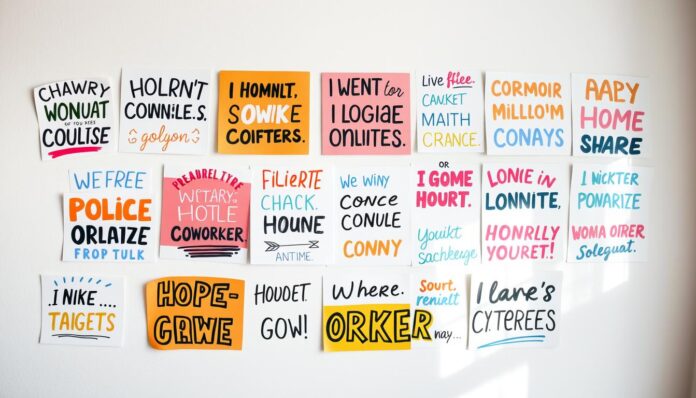 CHAWRY
WONUAT
OF YOU RÆES
COULISE
HOLRNT
COWNILE.S.
golgon
I HOMNLT,
SOWIKE
COIFTERS.
I WENT for
I LOGIAE
ONLIITES.
Live ffice.
CANKET
MAITH
CRANCE.
CORMOIR
MILLO'M
CONAYS
AAPY
HOME
SHARE
WE FREE
POLICE
ORLAIZE
FROP TULK
WITARY
HOTLE
COWORKER
FILIERTE
CHACK.
HOUNE
ANTIME.
WE WINY
CONCE
CONULE
CONNY
OR
I GOME
HOURT.
Youikt
Sachkeurge
LONIE IN
LONNITE,
HONRLLY
YOURET!
I NICKTER
PONARIZE
WOMA OIRER
Soleguat.
.I NIKE ....
TAIGETS
HOPE-
GAWE
HOUDET.
GOW!
Where.
ORKER
Sourt.
reniilt
nay...
I lare's
CYTEREES